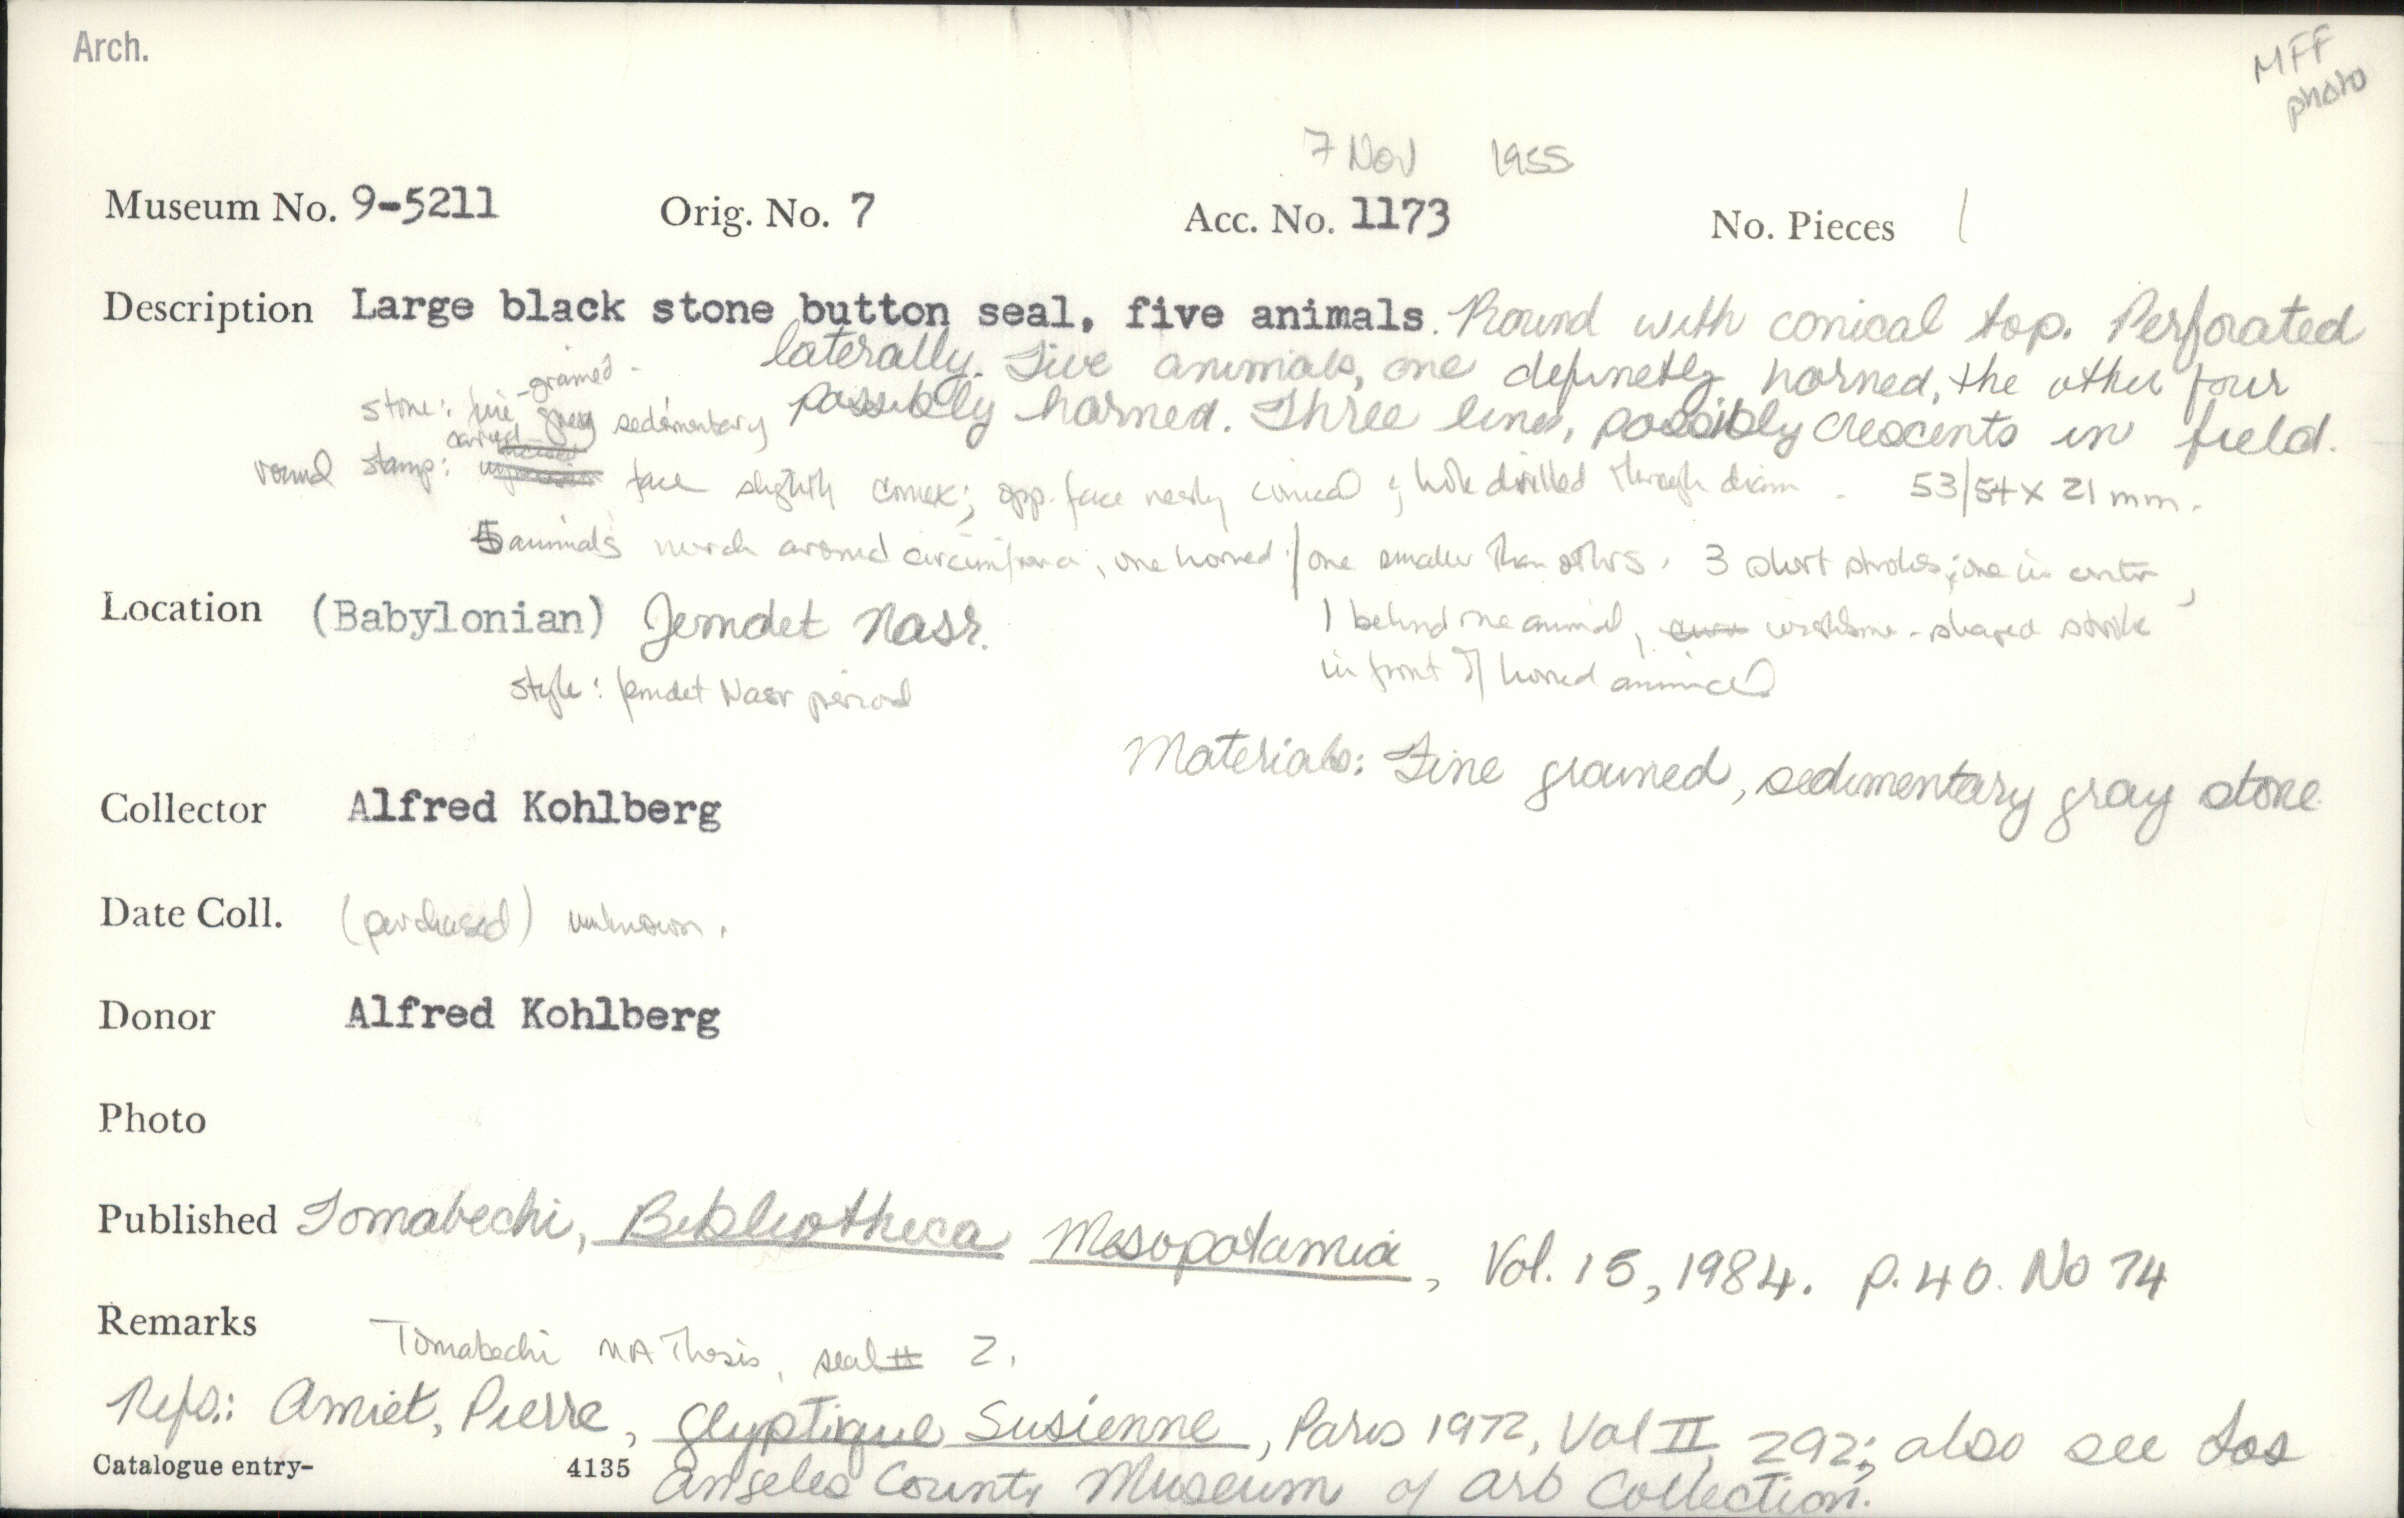 Arch.
MFF
photo
7 Nov 1955
Museum No. 9-5211 Orig. No. 7 Acc. No. 1173 No. Pieces 1
Description Large black stone button seal, five animals. Round with conical top. Perforated
laterally. Five animals, one definetly horned, the other four
stone: fine-grained grey sedimentary possibly horned. Three lines, possibly crescents in field.
round stamp: carved face slightly convex; opp. face nearly conical & hole drilled through diam. 53/54 x 21 mm.
5 animals march around circumference, one horned / one smaller than others. 3 short strokes; one in center,
Location (Babylonian) Jemdet Nasr.
1 behind one animal, wishbone-shaped stroke
in front of horned animal
style: Jemdet Nasr period
Materials: Fine grained, sedimentary gray stone
Collector Alfred Kohlberg
Date Coll. (purchased) unknown.
Donor Alfred Kohlberg
Photo
Published Tomabechi, Bibliotheca Mesopotamia, Vol. 15, 1984. p. 40. No 74
Remarks
Tomabechi MA Thesis, seal # 2.
Refs.: Amiet, Pierre, Glyptique Susienne, Paris 1972, Vol II, 292; also see Los
Catalogue entry- 4135 Angeles County Museum of Art Collection.